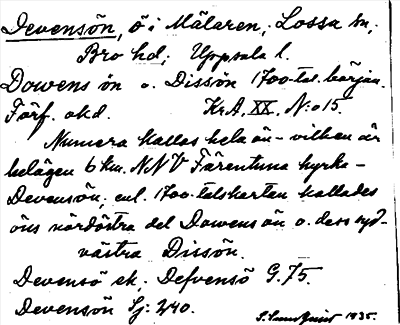 Devensön, ö i Mälaren, Lossa sn,
Bro hd, Uppsala l.
Dowens ön o. Dissön 1700-tal. början.
Förf. okd. Kr.A. XX. N:o 15.
Numera kallas hela ön - vilken är
belägen 6 km. NNV Färentuna kyrka -
Devensön, enl. 1700-talskartan kallades
öns nordöstra del Dowens ön o. dess syd-
västra Dissön.
Devensö ek. Defvensö G. 75.
Devensön Sj: 240.
1935.